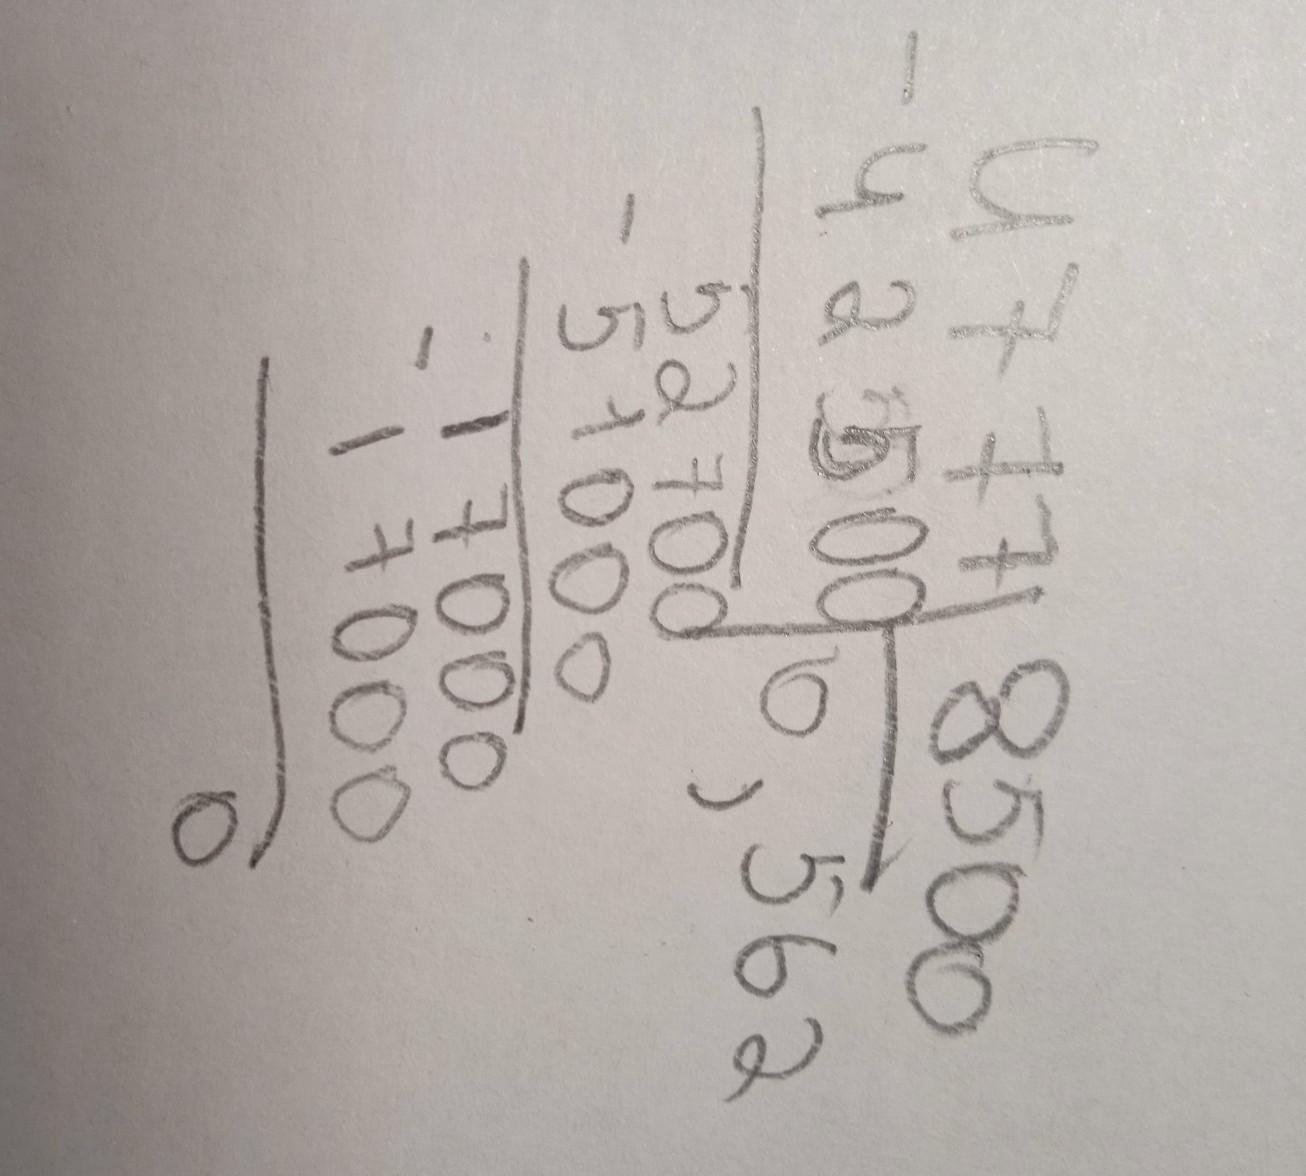 4777|8500
-42500 0,562
52700
-51000
17000
-17000
0